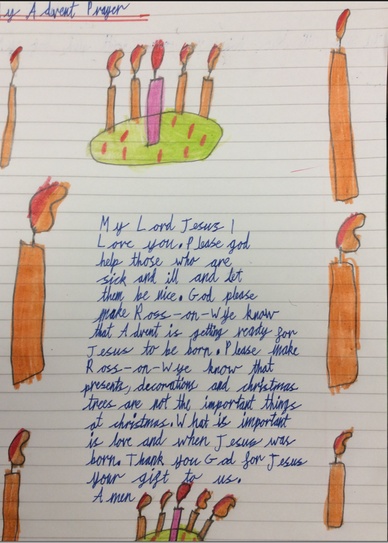 y Advent Prayer
My Lord Jesus I
Love you. Please god
help those who are
sick and ill and let
them be nice. God please
make Ross-on-Wye know
that Advent is getting ready for
Jesus to be born. Please make
Ross-on-Wye know that
presents, decorations and christmas
trees are not the important things
at christmas. What is important
is love and when Jesus was
born. Thank you God for Jesus
your gift to us.
Amen